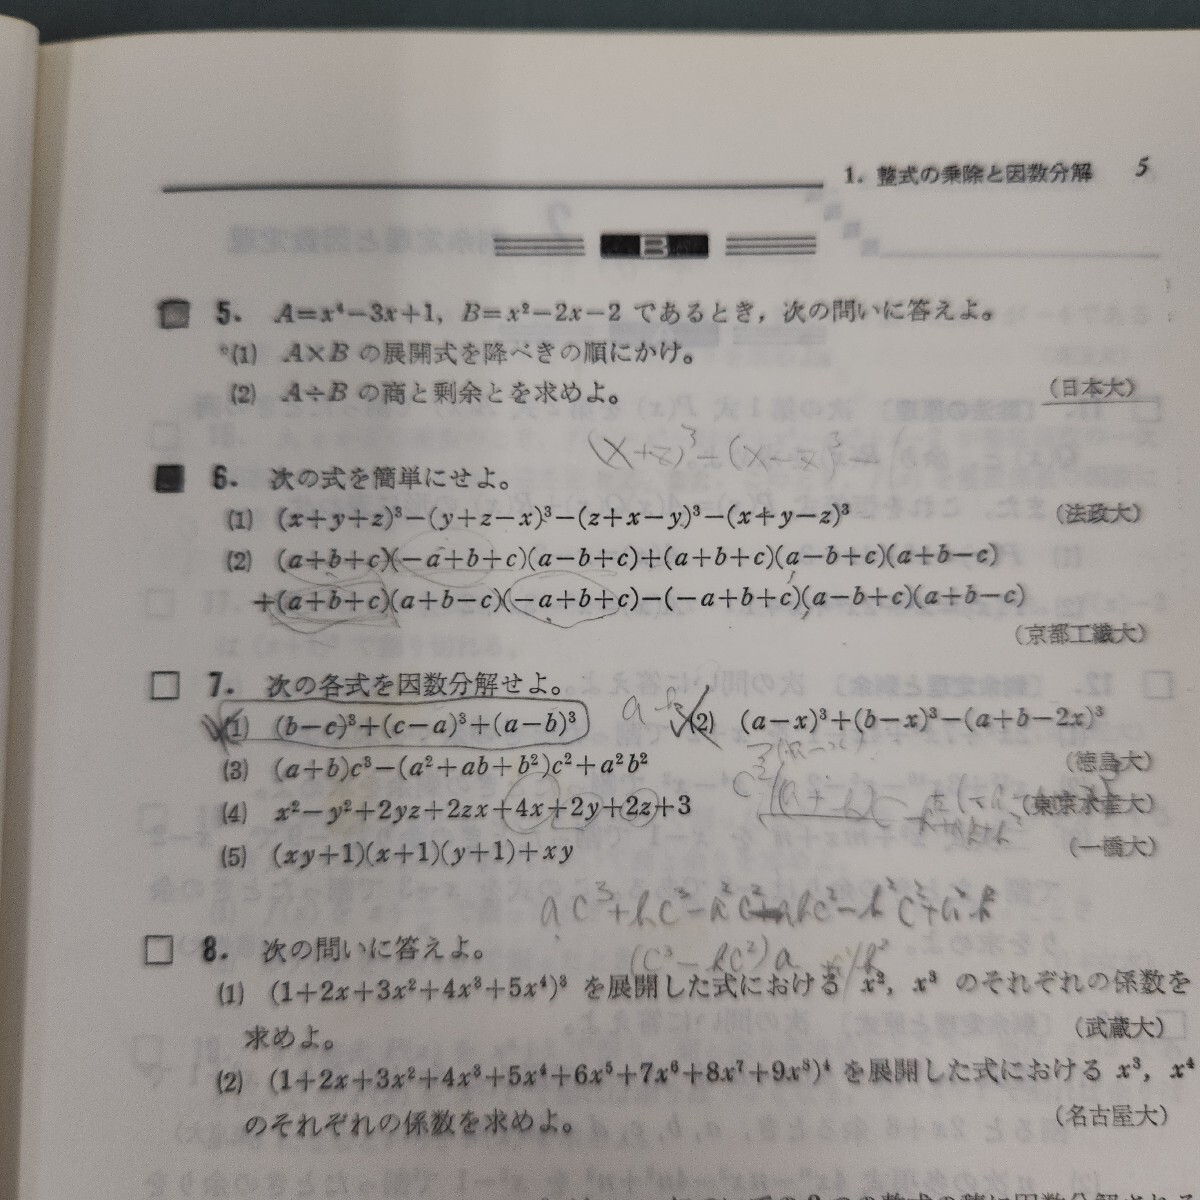 1. 整式の乗除と因数分解 5
B
5. A=x⁴−3x+1, B=x²−2x−2 であるとき,次の問いに答えよ。
°(1) A×B の展開式を降べきの順にかけ。
(2) A÷B の商と剰余とを求めよ。 (日本大)
(x+z)³+(x−z)³−
6. 次の式を簡単にせよ。
(1) (x+y+z)³−(y+z−x)³−(z+x−y)³−(x+y−z)³ (法政大)
(2) (a+b+c)(−a+b+c)(a−b+c)+(a+b+c)(a−b+c)(a+b−c)
+(a+b+c)(a+b−c)(−a+b+c)−(−a+b+c)(a−b+c)(a+b−c)
(京都工繊大)
7. 次の各式を因数分解せよ。
(1) (b−c)³+(c−a)³+(a−b)³ (2) (a−x)³+(b−x)³−(a+b−2x)³
(徳島大)
(3) (a+b)c³−(a²+ab+b²)c²+a²b²
(東京水産大)
(4) x²−y²+2yz+2zx+4x+2y+2z+3
(一橋大)
(5) (xy+1)(x+1)(y+1)+xy
ac³+bc³−a²c²−abc²−b²c²+a²b²
(c³−bc²)a
8. 次の問いに答えよ。
(1) (1+2x+3x²+4x³+5x⁴)³ を展開した式における x², x³ のそれぞれの係数を
求めよ。 (武蔵大)
(2) (1+2x+3x²+4x³+5x⁴+6x⁵+7x⁶+8x⁷+9x⁸)⁴ を展開した式における x³, x⁴
のそれぞれの係数を求めよ。 (名古屋大)